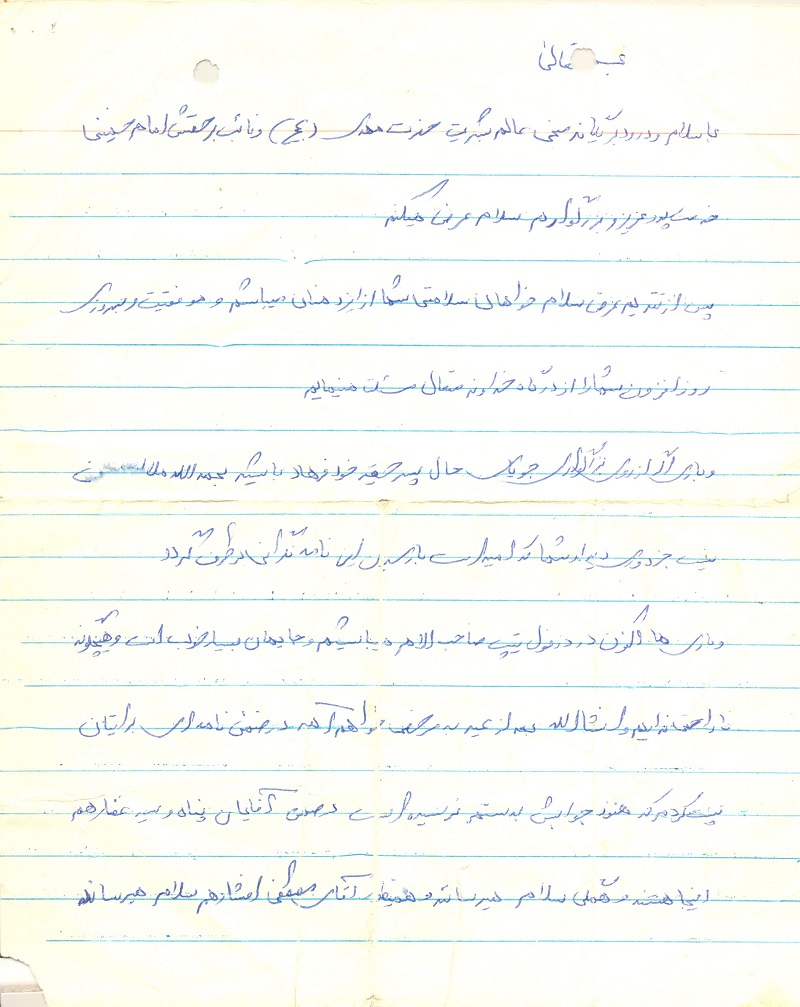 بسمه تعالی
با سلام و درود بر یگانه منجی عالم بشریت حضرت مهدی (عج) و نائب برحقش امام خمینی
خدمت پدر عزیز و بزرگوارم سلام عرض میکنم
پس از تقدیم عرض سلام خواهان سلامتی شما از ایزد منان میباشم و موفقیت و بهروزی
روز افزون شما را از درگاه خداوند متعال مسئلت مینمایم
و باری اگر از روی بزرگواری جویای حال پسر حقیر خود فرهاد باشید بحمدالله ملالی
نیست جز دوری دیدار شما که امید است با رسیدن این نامه نگرانی برطرف گردد
و باری ما اکنون در دزفول تیپ صاحب الامر میباشیم و حالمان بسیار خوب است و هیچگونه
ناراحتی نداریم و انشاالله بعد از عید به مرخصی خواهم آمد در ضمن نامه‌ای برایتان
پست کردم که هنوز جوابش بدستم نرسیده است در ضمن آقایان پناه و سید غفار هم
اینجا هستند و همگی سلام میرسانند و همینطور آقای مصطفی افشار هم سلام میرساند